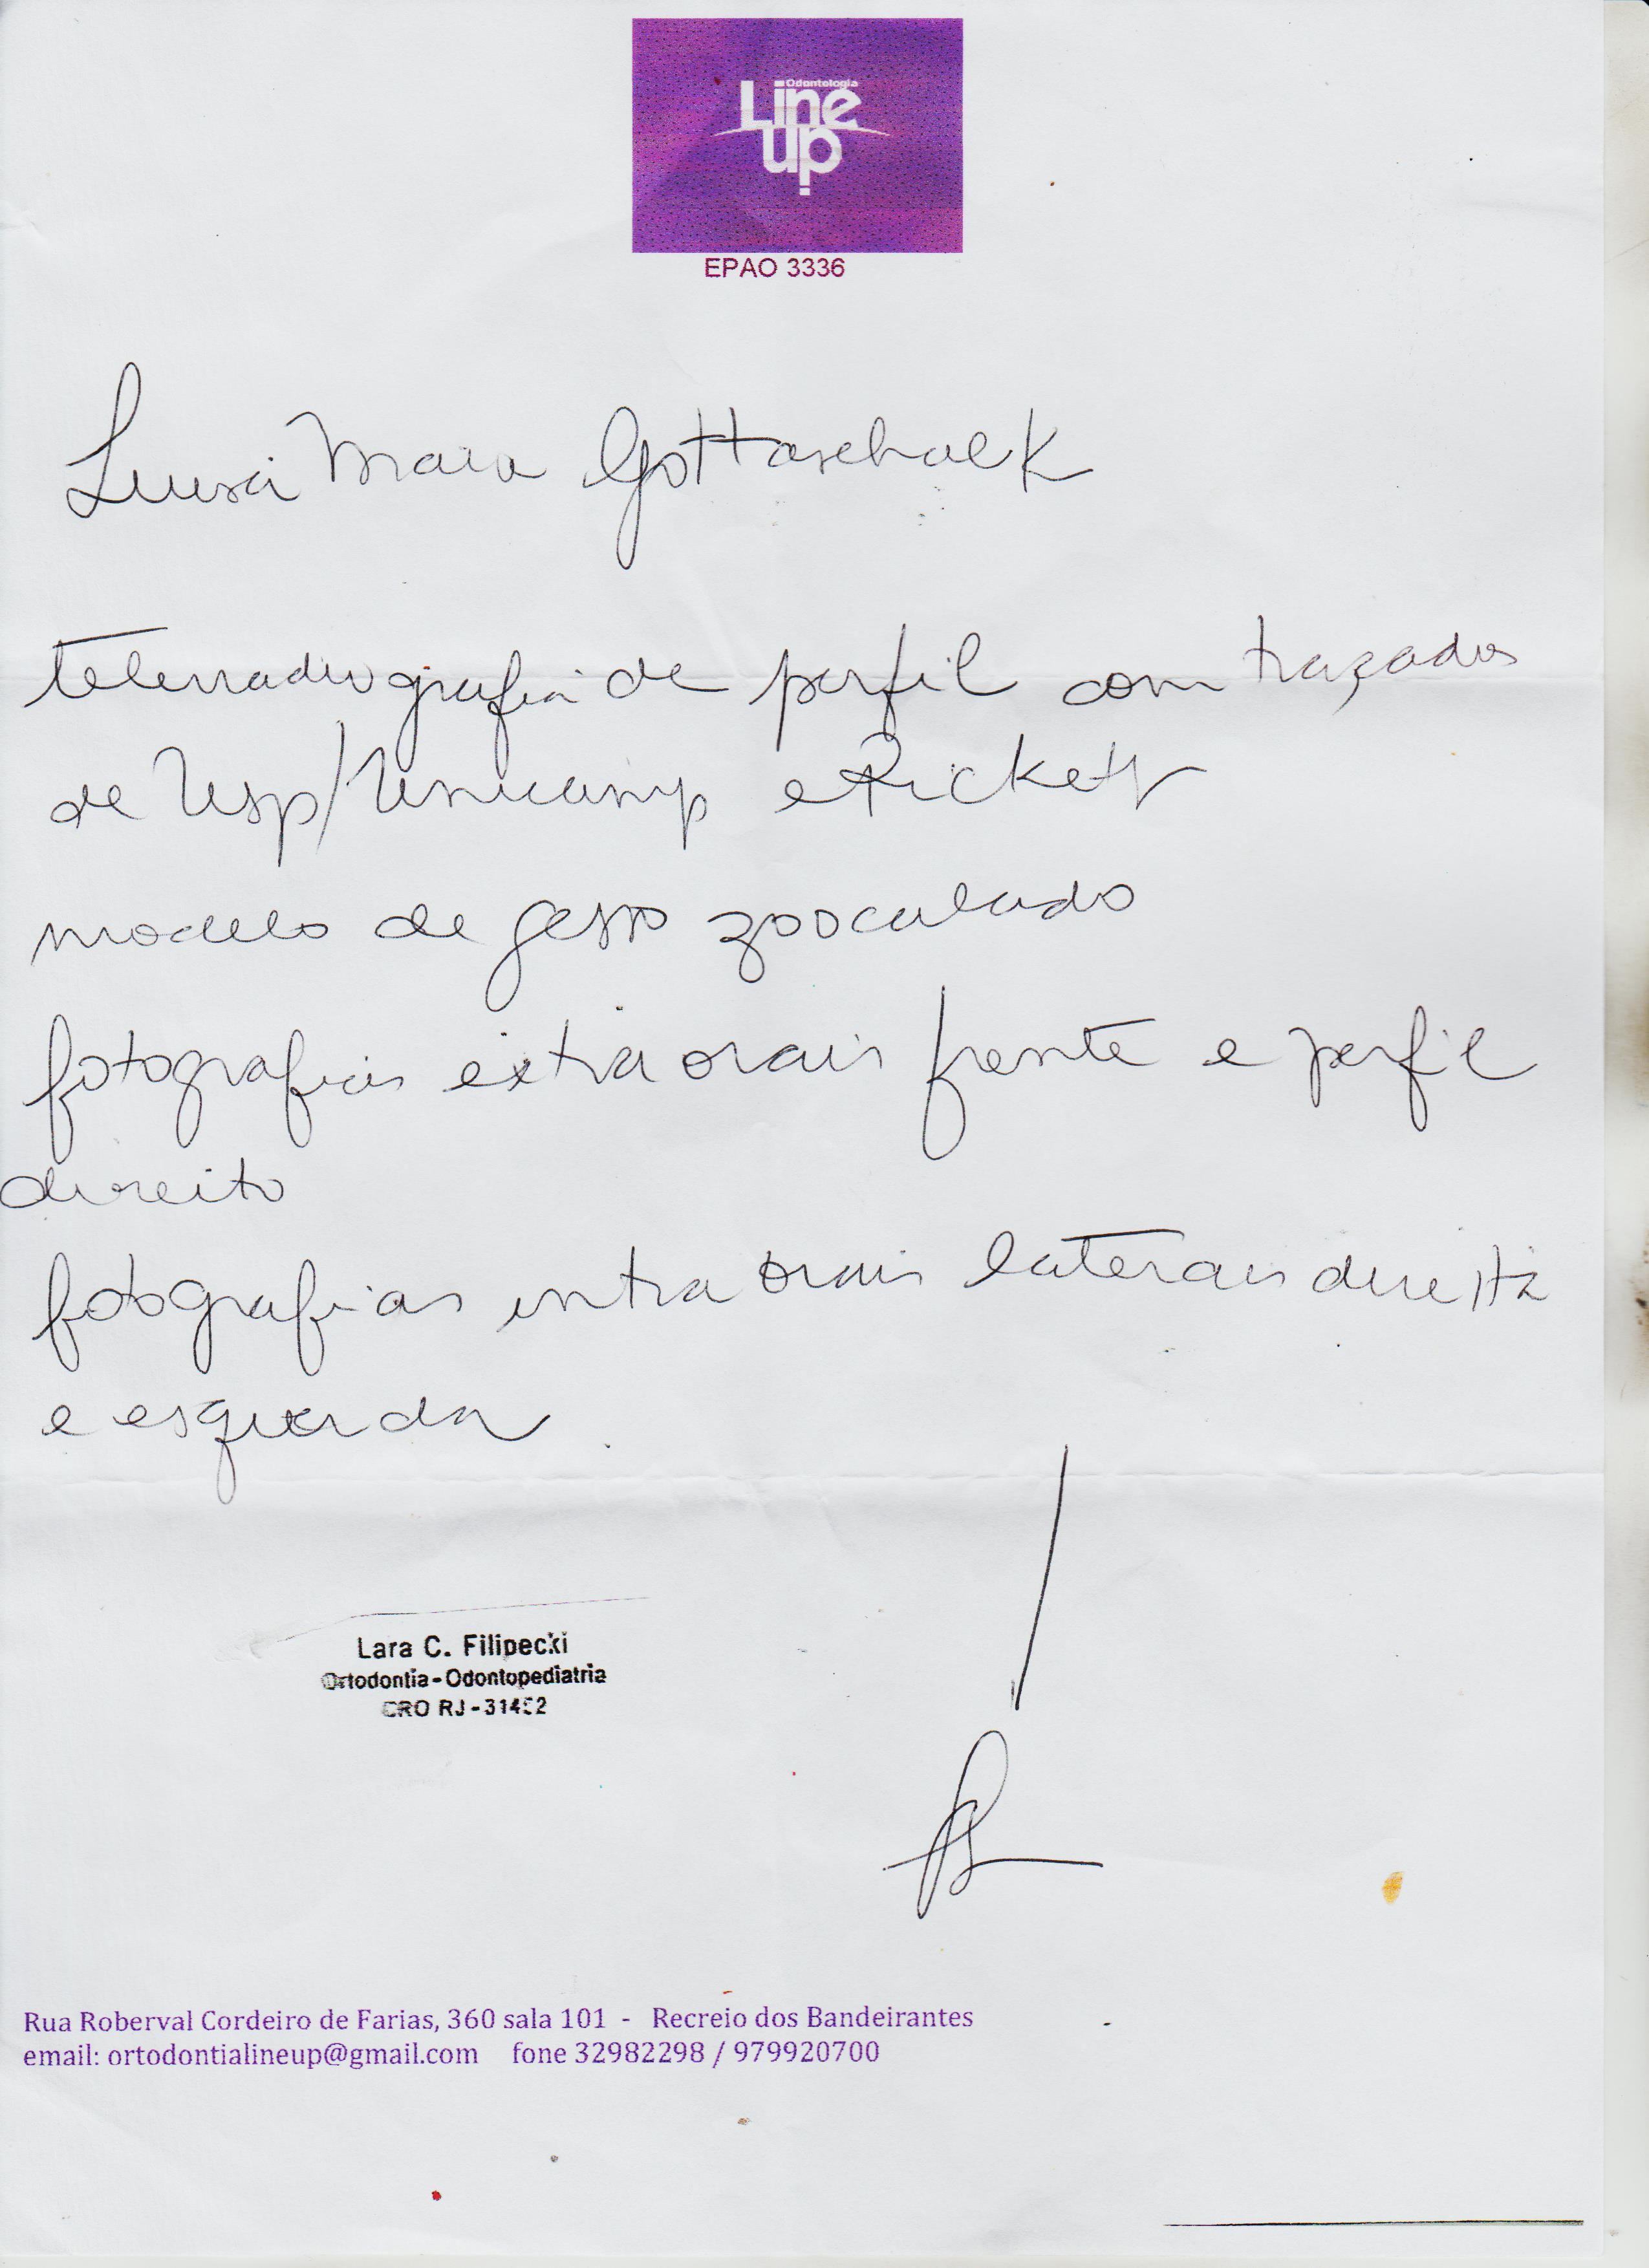 Odontologia
Line
up
EPAO 3336
Luisa Maia Gottaschalck
telerradiografia de perfil com traçados
de Usp/Unicamp e Rickets
modelo de gesso zooculado
fotografias extra orais frente e perfil
direito
fotografias intra orais laterais direita
e esquerda
Lara C. Filipecki
Ortodontia - Odontopediatria
CRO RJ -
Rua Roberval Cordeiro de Farias, 360 sala 101 - Recreio dos Bandeirantes
email: ortodontialineup@gmail.com fone 32982298 / 979920700